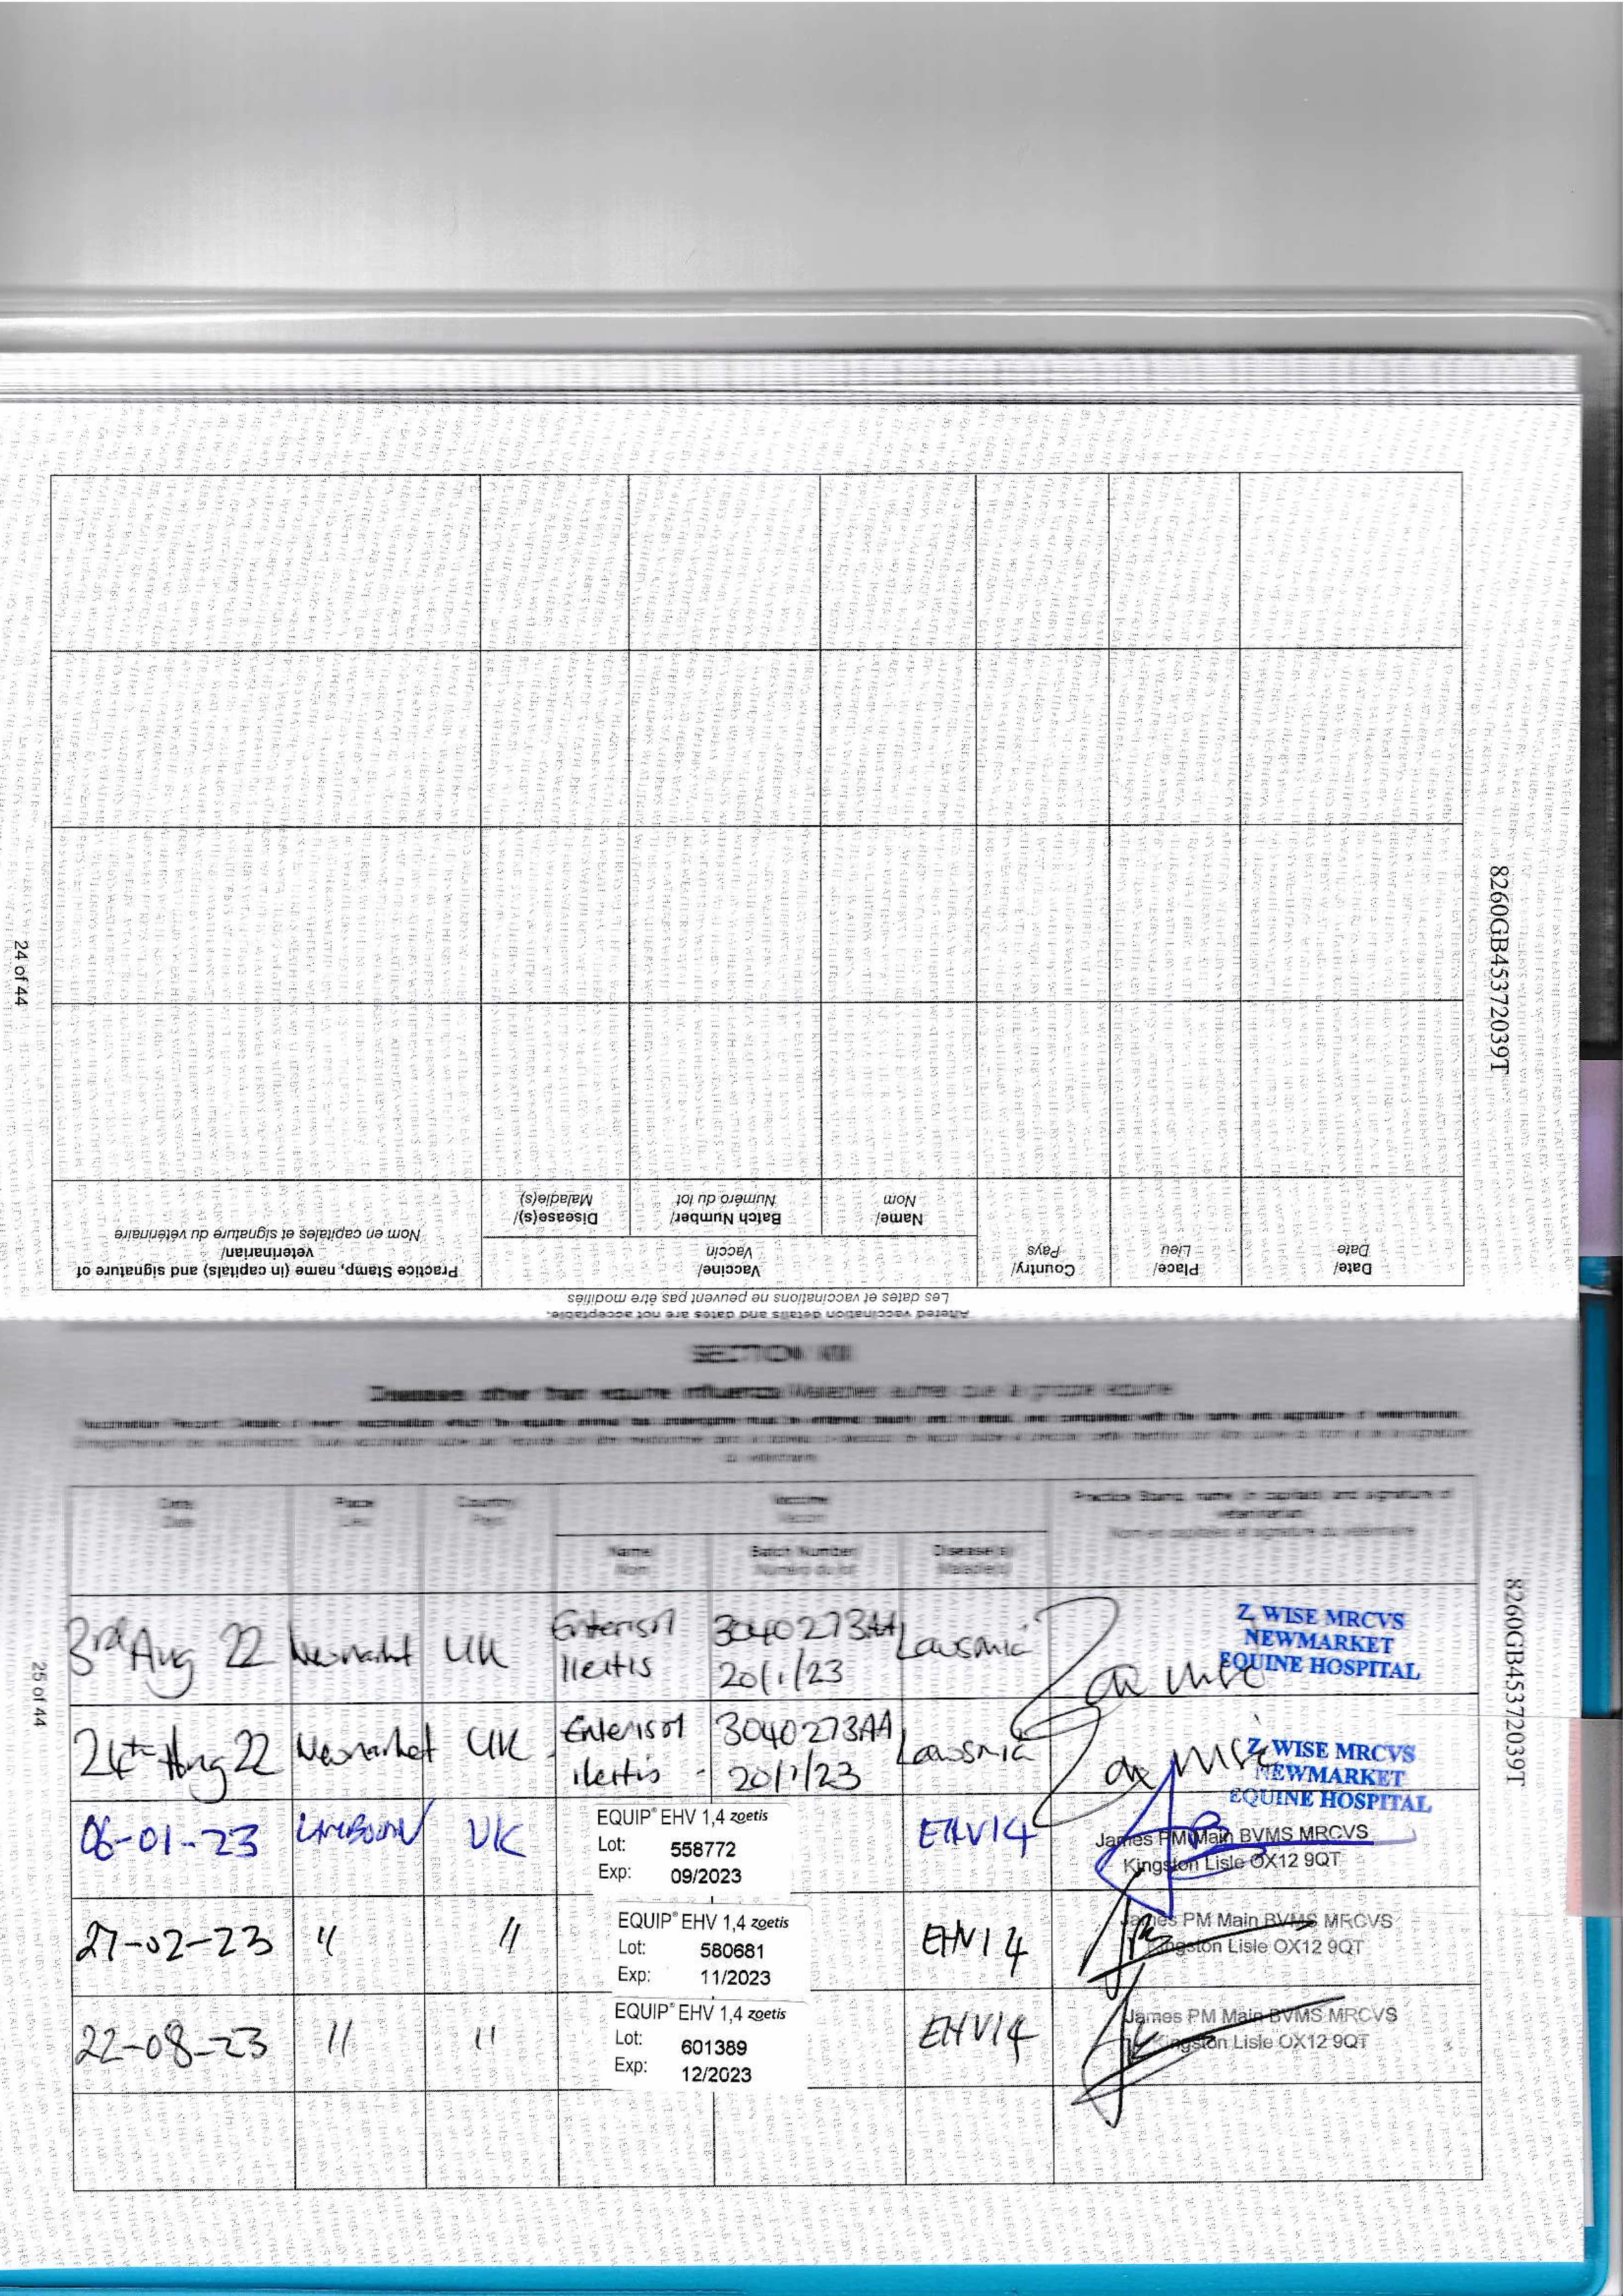 8260GB45372039T
24 of 44
Altered vaccination details and dates are not acceptable.
Les dates et vaccinations ne peuvent pas être modifiés
Date/
Date
Place/
Lieu
Country/
Pays
Vaccine/
Vaccin
Name/
Nom
Batch Number/
Numéro du lot
Disease(s)/
Maladie(s)
Practice Stamp, name (in capitals) and signature of
veterinarian/
Nom en capitales et signature du vétérinaire
8260GB45372039T
25 of 44
SECTION
Diseases other than equine influenza/Maladies autres que la grippe equine
Date/
Date
Place/
Lieu
Country/
Pays
Vaccine
Vaccin
Name
Nom
Batch Number/
Numéro du lot
Disease(s)
Maladie(s)
Practice Stamp, name (in capitals) and signature of
veterinarian/
Nom en capitales et signature du vétérinaire
3rd Aug 22 Newmarket UK Enterisol Ileitis 3040273AA 20/1/23 Lawsonia
Z. WISE MRCVS
NEWMARKET
EQUINE HOSPITAL
24th Aug 22 Newmarket UK Enterisol ileitis - 3040273AA 20/1/23 Lawsonia
Z. WISE MRCVS
NEWMARKET
EQUINE HOSPITAL
06-01-23 LAMBOURN UK
EQUIP® EHV 1,4 zoetis
Lot: 558772
Exp: 09/2023
EHV14
James PM Main BVMS MRCVS
Kingston Lisle OX12 9QT
27-02-23 " "
EQUIP® EHV 1,4 zoetis
Lot: 580681
Exp: 11/2023
EHV14
James PM Main BVMS MRCVS
Kingston Lisle OX12 9QT
22-08-23 " "
EQUIP® EHV 1,4 zoetis
Lot: 601389
Exp: 12/2023
EHV14
James PM Main BVMS MRCVS
Kingston Lisle OX12 9QT